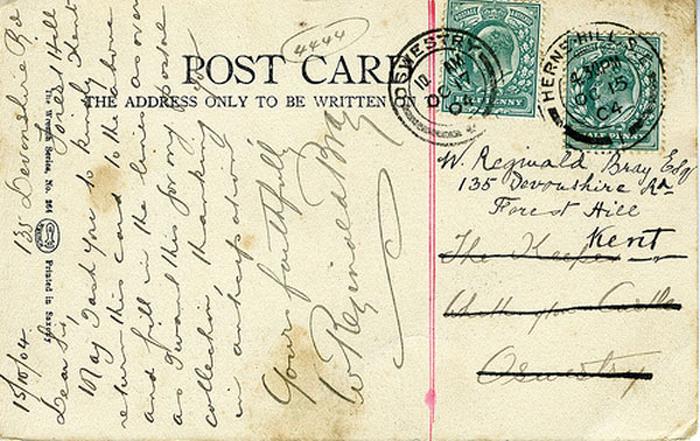 POST CARD
THE ADDRESS ONLY TO BE WRITTEN ON
4444
The Wrench Series, No. 264
Printed in Saxony
135 Devonshire Rd
Forest Hill
Kent
15/10/04
Dear Sir,
May I ask you to kindly
return this card to the above
and fill in the lines as over
as I want this for my postal
collection, thanking you
in anticipation
Yours faithfully
W Reginald Bray
OSWESTRY
OC 17
04
HALF PENNY
HERNE-HILL S.E
4.30PM
OC 15
04
HALF PENNY
W. Reginald Bray Esq
135 Devonshire Rd
Forest Hill
Kent
The Keeper
Castle
Oswestry